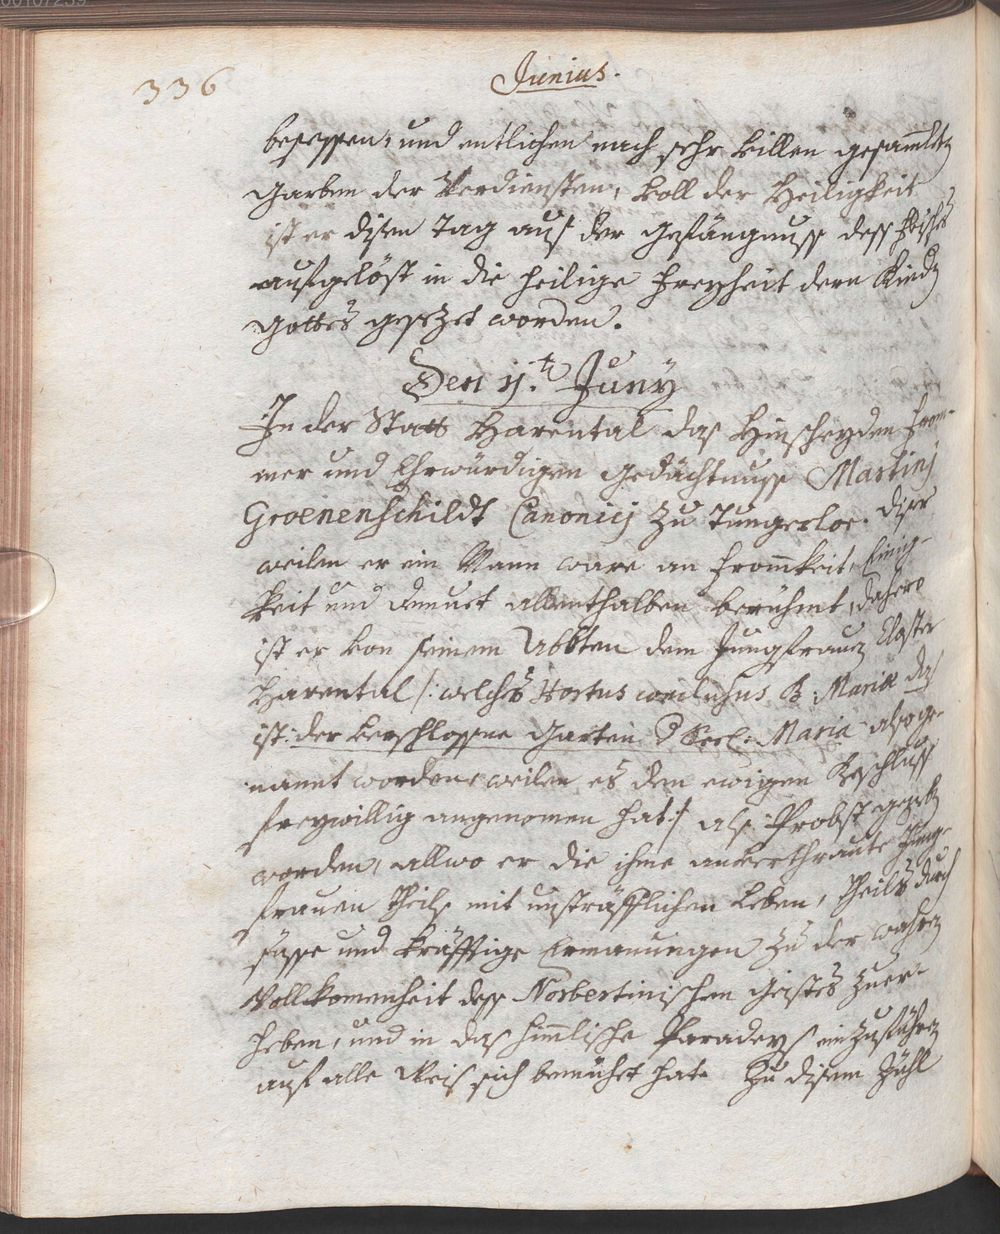 336
Junius.
besessen, und entlichen nach sehr villen gesammleten
Garben der Verdiensten, voll der Heiligkeit
ist er disen Tag auß der Gefängnuß deß
aufgelöst in die heilige Freyheit dern Kinder
Gottes gesezet worden.
Den 11.t Juny
In der Statt Harental das Hinscheyden from-
mer und Ehrwürdigen Gedächtnuß Martinj
Groenenschildt Canonicj zu Tungerloe. Diser
weilen er ein Mann ware an Frommkeit, Einig-
keit und Demuet allenthalben berühmt, dahero
ist er von seinem Abbten dem Jungfrauen Closter
Harental /: welches Hortus conclusus B: Mariæ das
ist: der verschlossene Garten d Seel: Maria also ge-
nannt worden, weilen es den ewigen Beschluß
freywillig angenomen hat :/ als Probst gegeben
worden, allwo er die ihme anverthraute Jung-
frauen theils mit unsträfflichen Leben, theils durch
süsse und kräfftige Ermanungen zu der wahren
Vollkomenheit deß Norbertinischen Geistes zuer-
heben, und in das himlische Paradeyß einzuführen
auf alle Weis sich bemühet hat. Zu disem Zühl